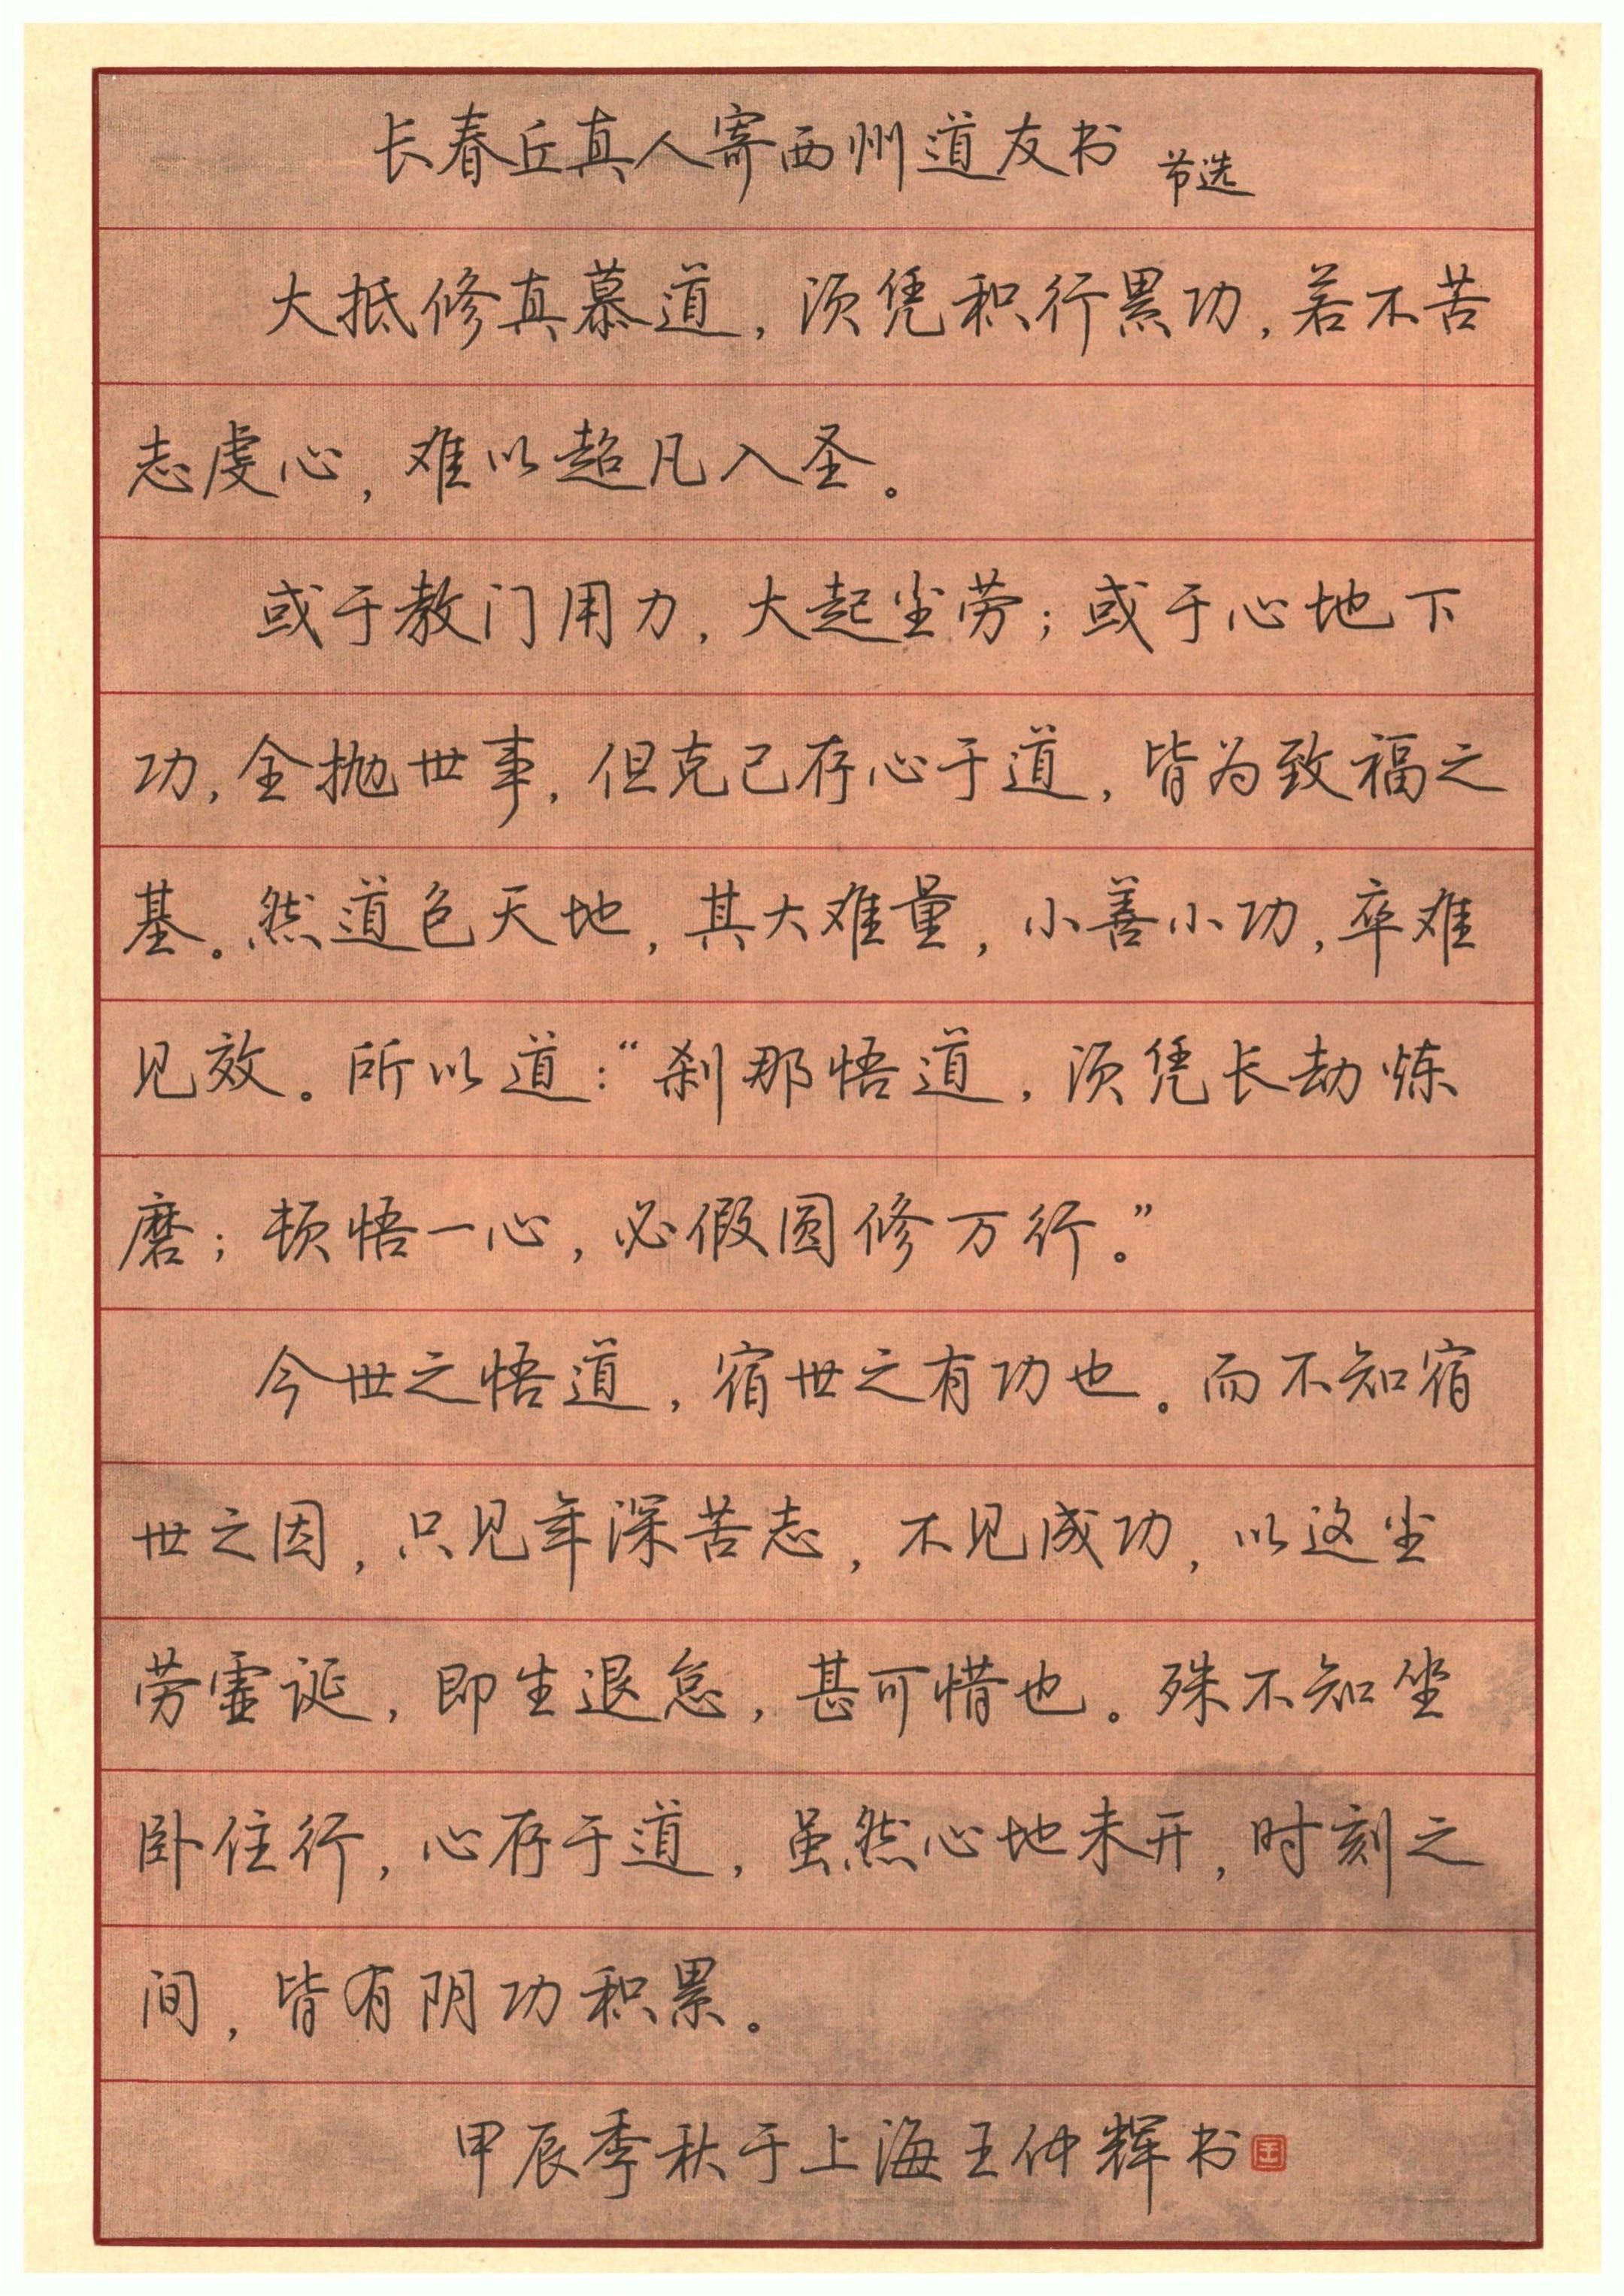 长春丘真人寄西州道友书 节选
大抵修真慕道，须凭积行累功，若不苦
志虔心，难以超凡入圣。
或于教门用力，大起尘劳；或于心地下
功，全抛世事，但克己存心于道，皆为致福之
基。然道包天地，其大难量，小善小功，卒难
见效。所以道：“刹那悟道，须凭长劫炼
磨；顿悟一心，必假圆修万行。”
今世之悟道，宿世之有功也。而不知宿
世之因，只见年深苦志，不见成功，以这尘
劳虚诞，即生退怠，甚可惜也。殊不知坐
卧住行，心存于道，虽然心地未开，时刻之
间，皆有阴功积累。
甲辰季秋于上海王仲辉书
王